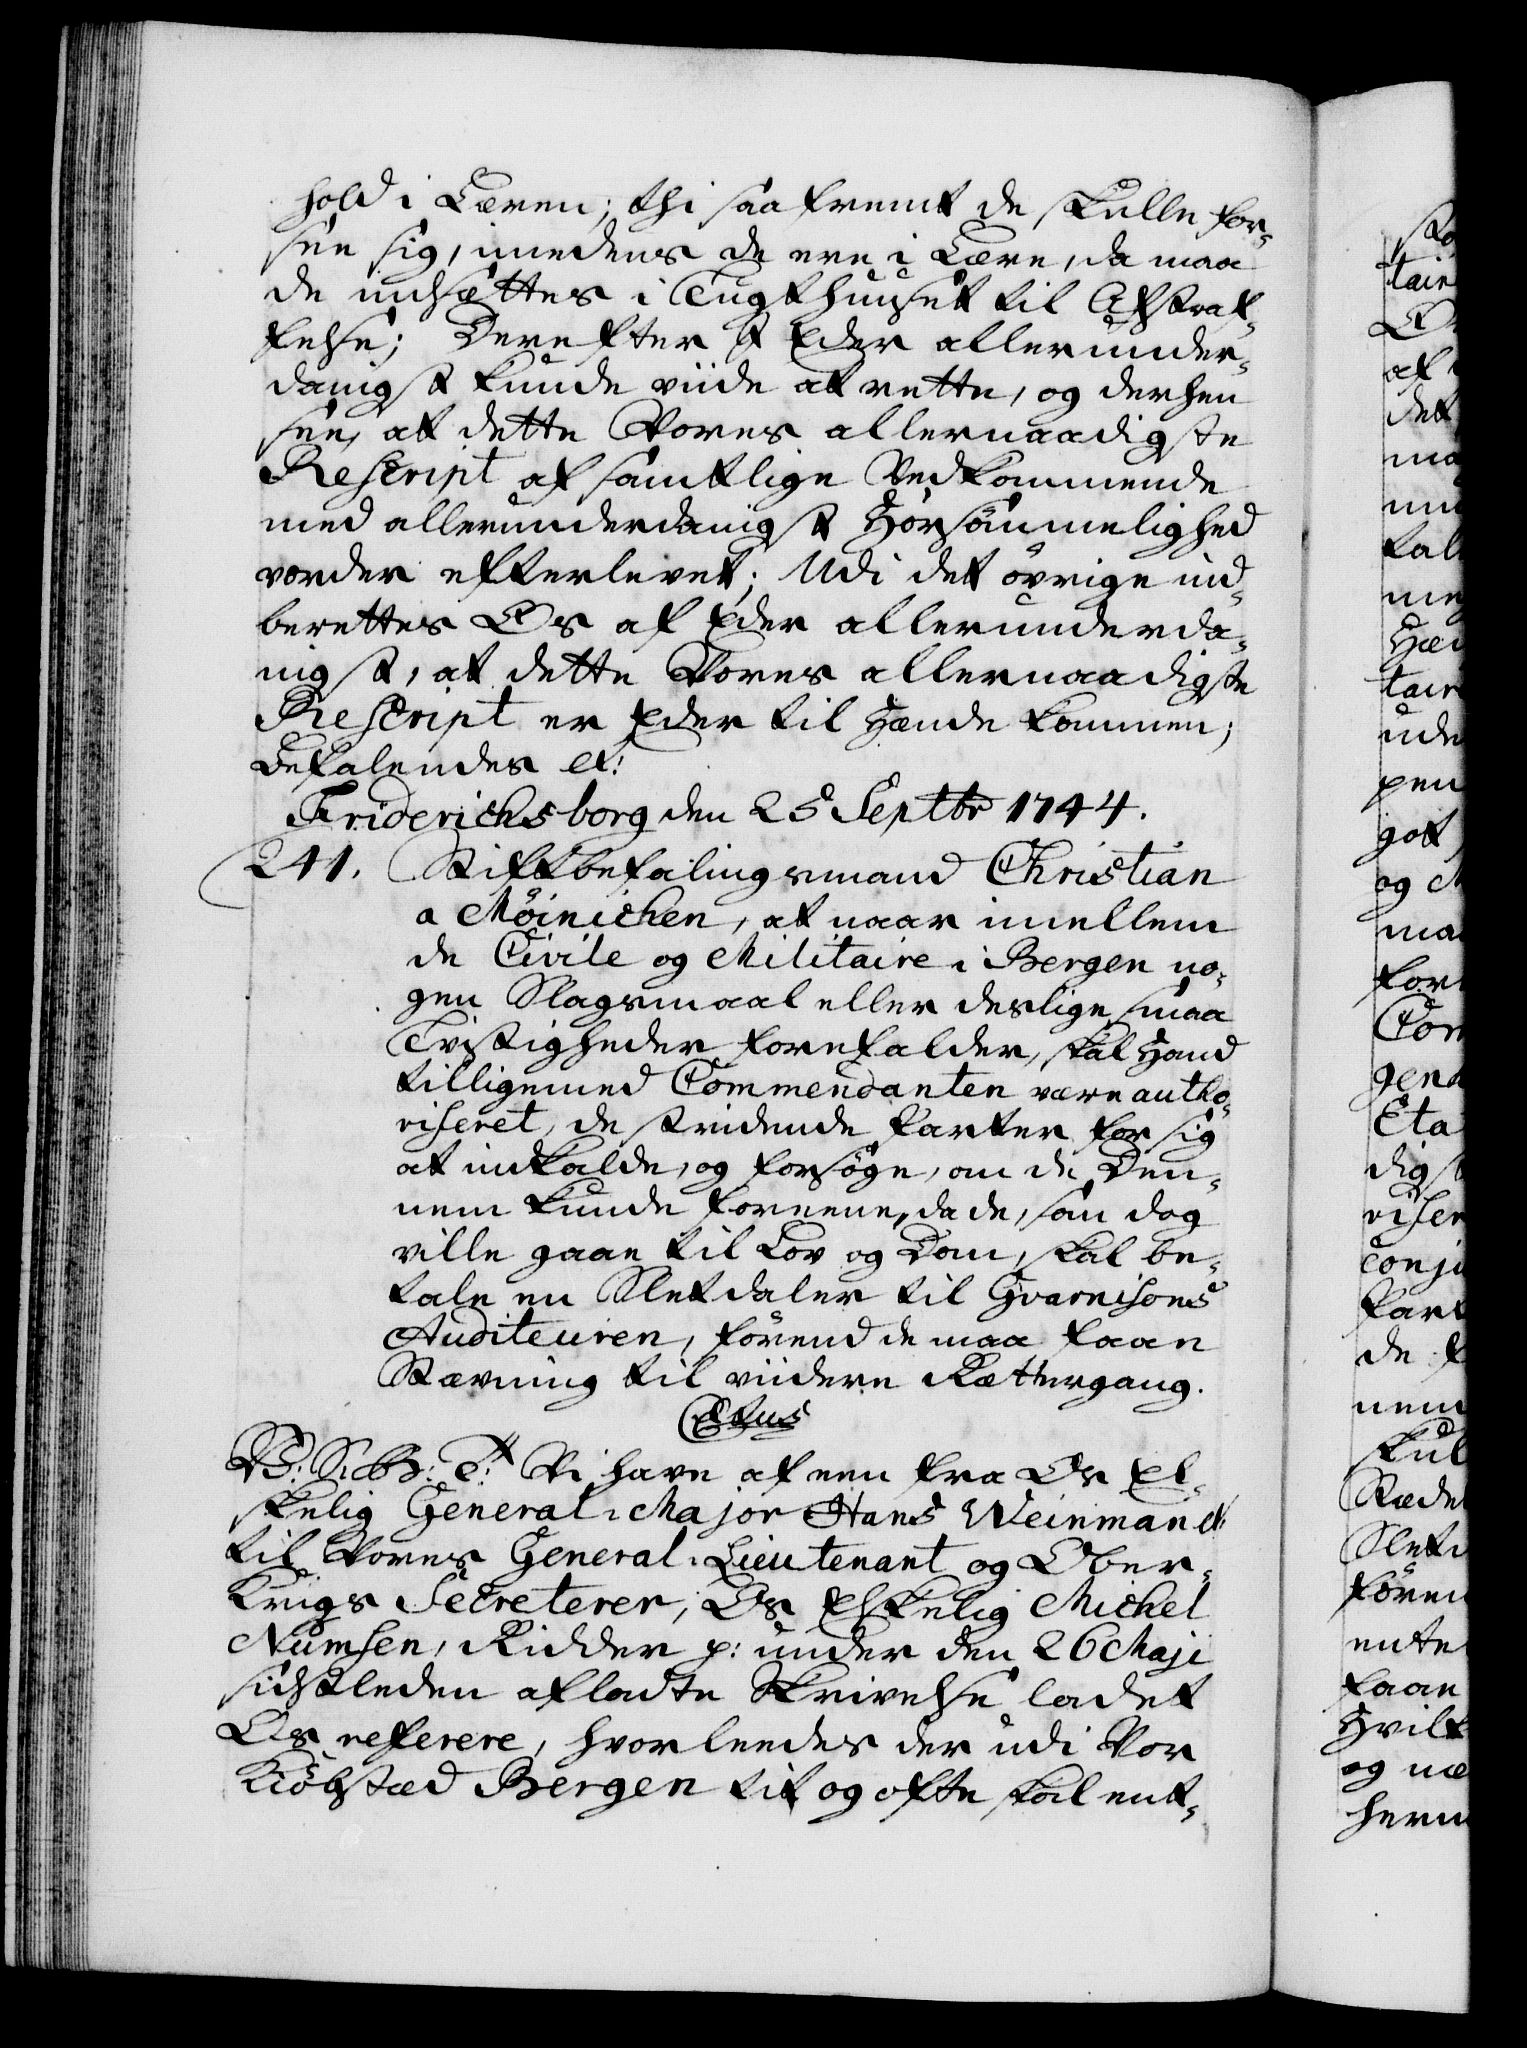 hold i Læren; thi saafremt de skulle for-
see sig, imedens de ere i Lære, da maa
de indsættes i Tugthuuset til Afstraf-
felse; Derefter I Eder allerunder-
danigst kunde viide at rette, og derhen
see, at dette Vores allernaadigste
Rescript af samtlige Vedkommende
med allerunderdanigst Hørsømmelighed
vorder efterlevet; Udi det øvrige ind-
berettes Os af Eder allerunderda-
nigst, at dette Vores allernaadigste
Rescript er Eder til Hænde kommen;
Befalendes etc:
Friderichsborg den 25 Septbr 1744.
241. Stiftbefalingsmand Christian
a Möinichen, at naar imellem
de Civile og Militaire i Bergen no-
gen Slagsmaal eller deslige smaa
Tvistigheder forefalder, skal Hand
tilligemed Commendanten være autho-
riseret, de stridende Parter for sig
at indkalde, og forsøge, om de Den-
nem kunde foreene, da de, som dog
ville gaae til Lov og Dom, skal be-
tale en Sletdaler til Gvarnisons
Auditeuren, förend de maa faae
Stævning til viidere Rættergang.
Vi have af een fra Os El-
skelig General-Major Hans Weinman etc.
til Vores General-Lieutenant og Ober-
Krigs Secreterer, Os Elskelig Michel
Numsen, Ridder p: under den 26 Maji
sidstleden afladte Skrivelse ladet
Os referere, hvorleedes der udi Vor
Kiöbstæd Bergen tit og ofte skal ent-